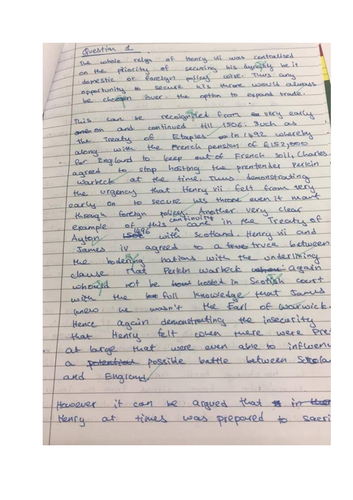 Question 2
The whole reign of Henry vii was centralised
on the priority of securing his dynasty be it
domestic or foreign policy wise. Thus any
opportunity to secure his throne would always
be chosen over the option to expand trade.
This can be recognised from very early
on and continued till 1506. Such as
the Treaty of Etaples in 1492 whereby
along with the French pension of £152,000
for England to keep out of French soil, Charles
agreed to stop hosting the pretender Perkin
Warbeck at the time. Thus demonstrating
the urgency that Henry vii felt from very
early on to secure his throne even it meant
through foreign policy. Another very clear
example of this continuing came in the Treaty of
Ayton with Scotland. Henry vii and
James iv agreed to a truce between
the bodering nations with the underlining
clause that Perkin Warbeck again
would not be hosted in Scotish court
with the full knowledge that James
knew he wasn't the Earl of Warwick.
Hence again demonstrating the insecurity
that Henry felt when there were Pre
at large that were even able to influenc
a possible battle between Scotla
and England.
However it can be argued that
Henry at times was prepared to sacri